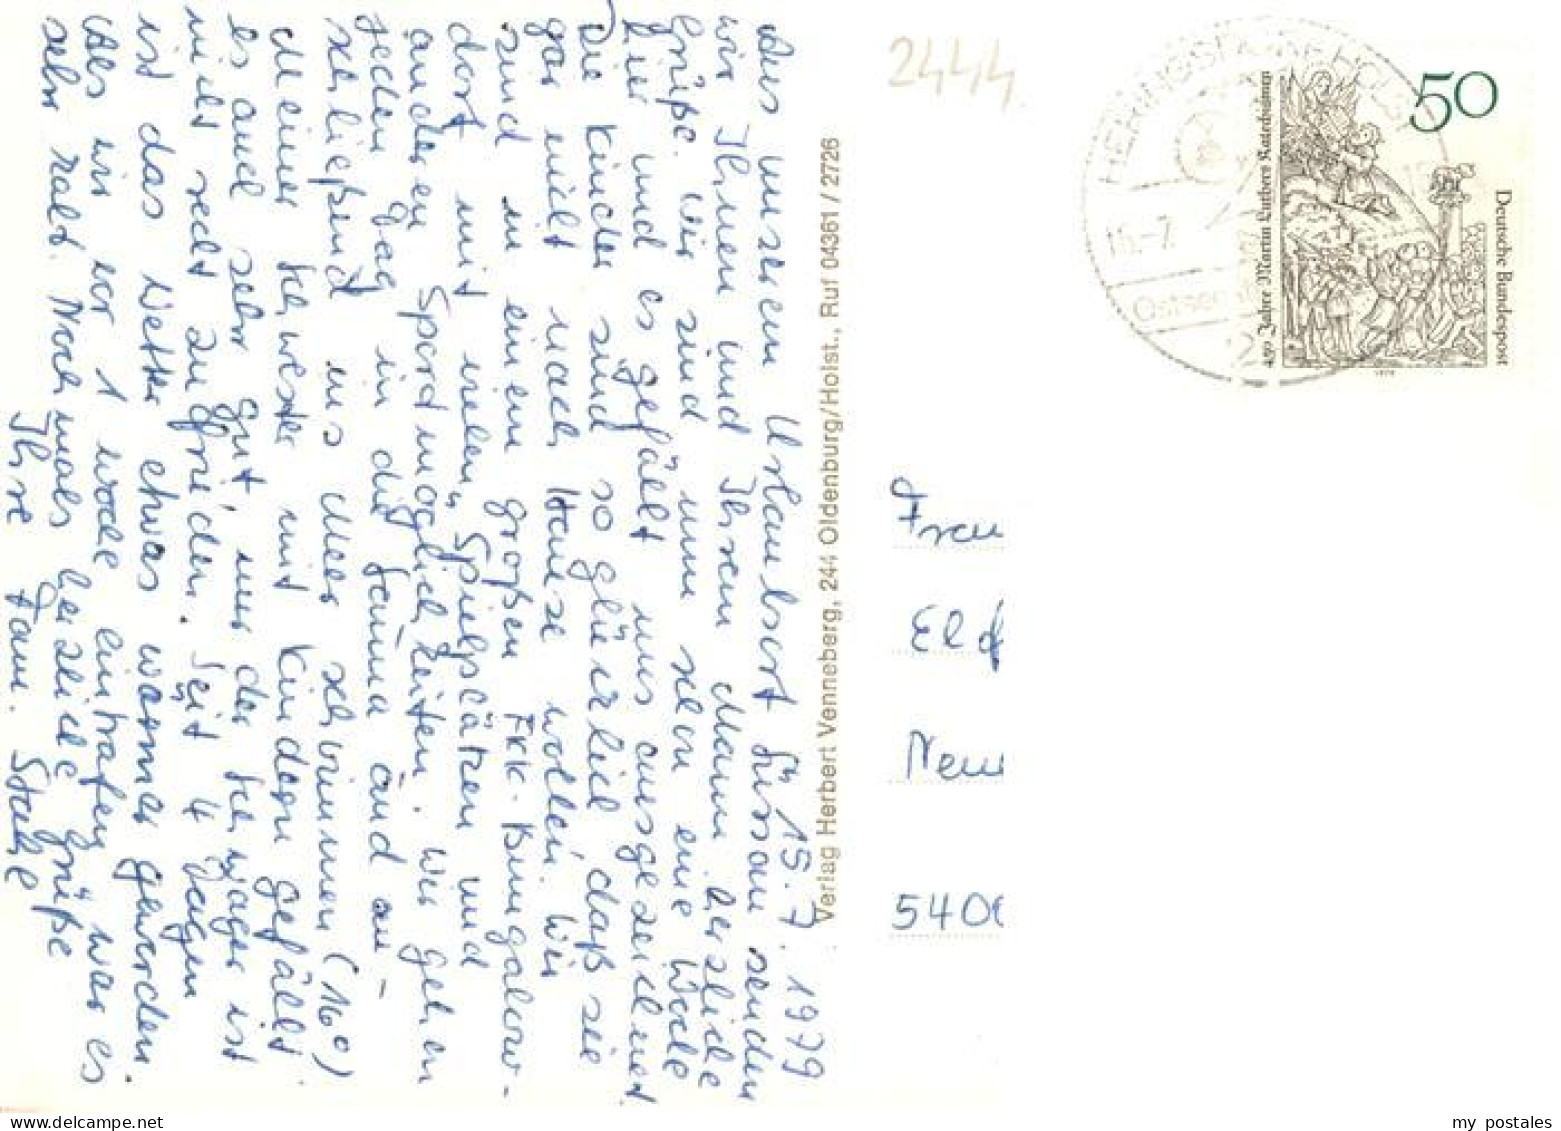 15. 7. 1979
Aus unserem Urlaubsort Süssau senden
wir Ihnen und Ihrem Mann herzliche
Grüße. Wir sind nun schon eine Woche
hier und es gefällt uns ausgezeichnet
Die Kinder sind so glücklich daß sie
gar nicht nach Hause wollen. Wir
sind in einem großen FKK-Bungalow-
dorf mit vielen Spielplätzen und
anderen Sportmöglichkeiten. Wir gehen
jeden Tag in die Sauna und an-
schließend ins Meer schwimmen (16°)
Meiner Schwester mit Kindern gefällt
es auch sehr gut, nur der Schwager ist
nicht recht zufrieden. Seit 4 Tagen
ist das Wetter etwas warmer geworden.
Als wir vor 1 Woche eintrafen, war es
sehr kalt. Nochmals herzliche Grüße
Ihre Fam.
Verlag Herbert Venneberg, 244 Oldenburg/Holst., Ruf 04361 / 2726
2444
HERINGSDORF HOLST
15.-7.
Ostsee
50
450 Jahre Martin Luthers Katechismus
Deutsche Bundespost
1979
Frau
Elf
Neu
540
my postales